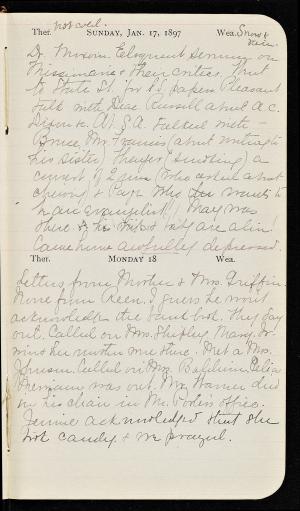 Ther. not cold. SUNDAY, JAN. 17, 1897 Wea. Snow & rain.
Dr. Eloquent Sermon on
Missionaries & their critics. Went
to State St. for S.S. papers Pleasant
talk with Dea. Russell about A.C.
at S.A. Talked with
Bruce, Mr. Francis (about writing to
his sister) Thayer (smoking) a
convert of (who asked about
chewing) & Page who wants to
be an evangelist! Mary was
there & her are alive!
Came home awfully depressed.
Ther. MONDAY 18 Wea.
Letters from Mother & Mrs. Griffin.
None from Green. I guess he won't
acknowledge the bank book. Sthg day
out. Called on Mrs. Shipley, Mary,
her mother were there. Met a Mrs.
Johnson. Called on Mrs. Baldwin. Celia
Merriam was out. Mr. Warner died
in his chair in Mr. office.
Jennie acknowledged that she
took candy & we prayed.